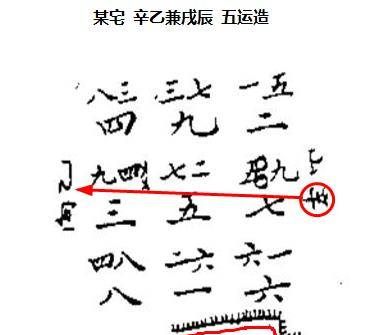 某宅 辛乙兼戌辰 五运造
八三 三七 一五
四 九 二
九四 七二 九
三 五 七
四八 二六 六一
八 一 六